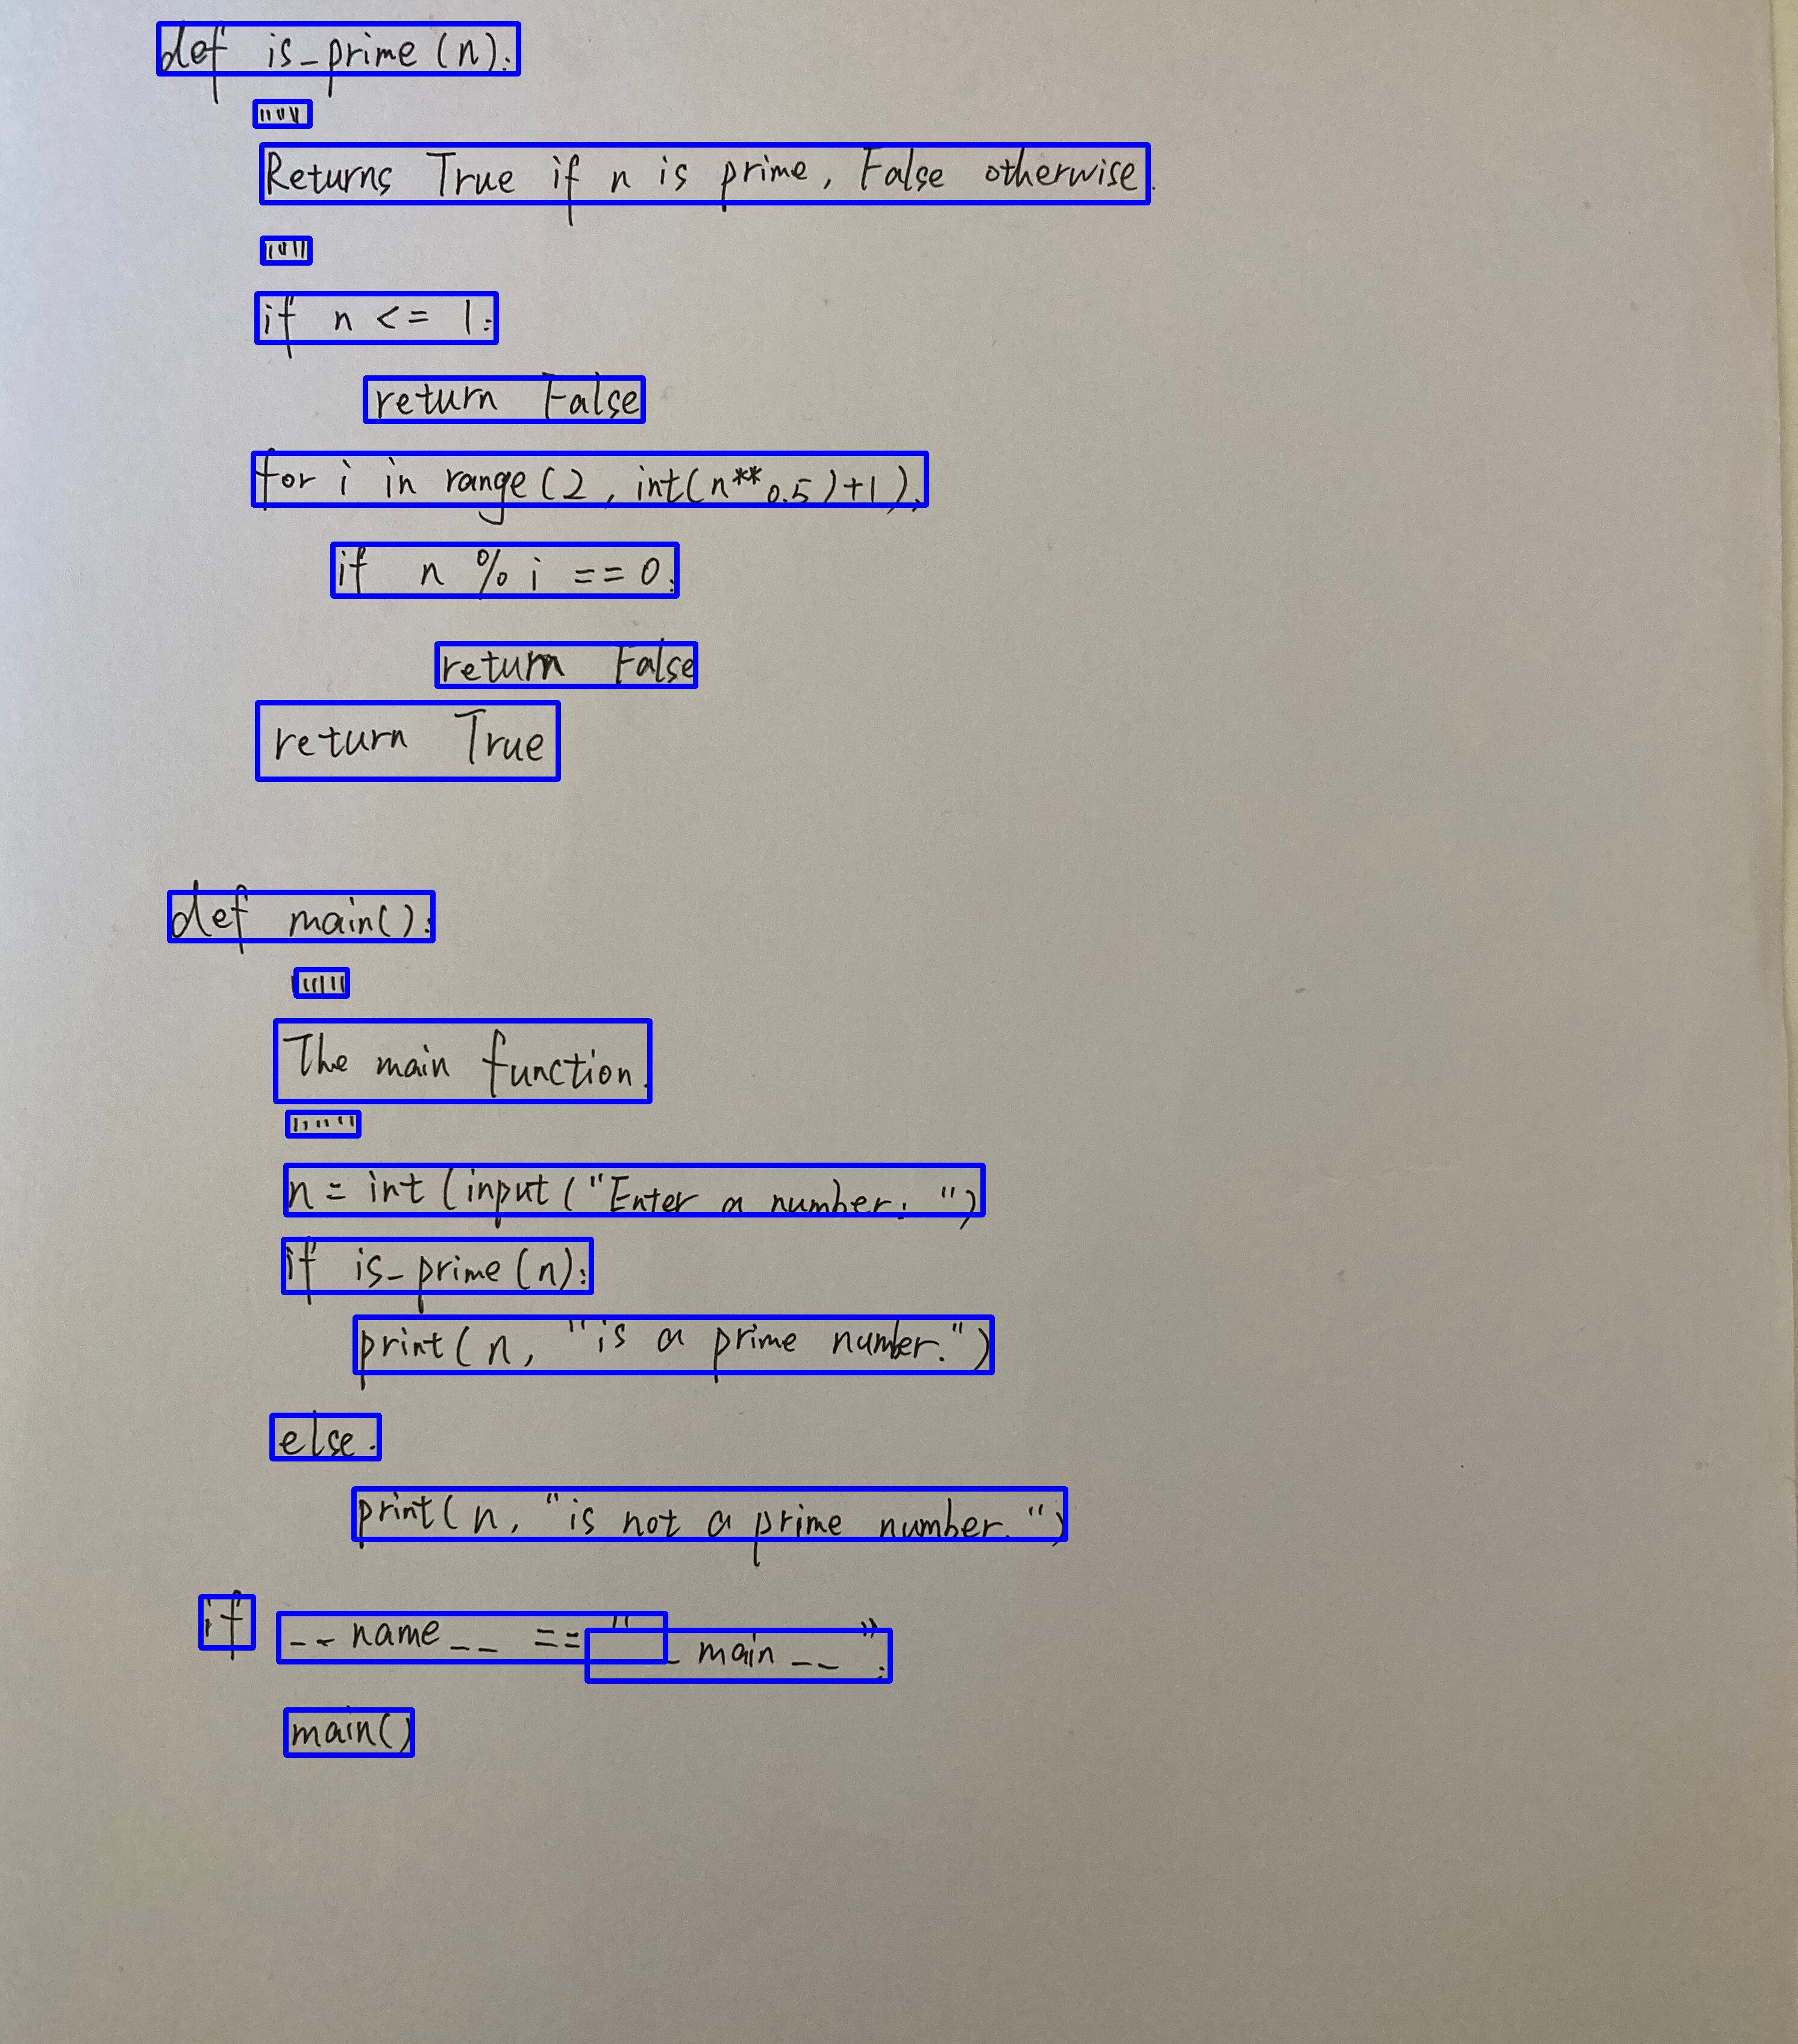 def is_prime (n):
""""
Returns True if n is prime, False otherwise.
""""
if n <= 1:
return False
for i in range (2, int(n**0.5)+1):
if n % i == 0:
return False
return True
def main():
""""""
The main function.
""""""
n = int (input ("Enter a number: ")
if is_prime (n):
print (n, "is a prime number.")
else:
print (n, "is not a prime number. ")
if __name__ == "__main__":
main()